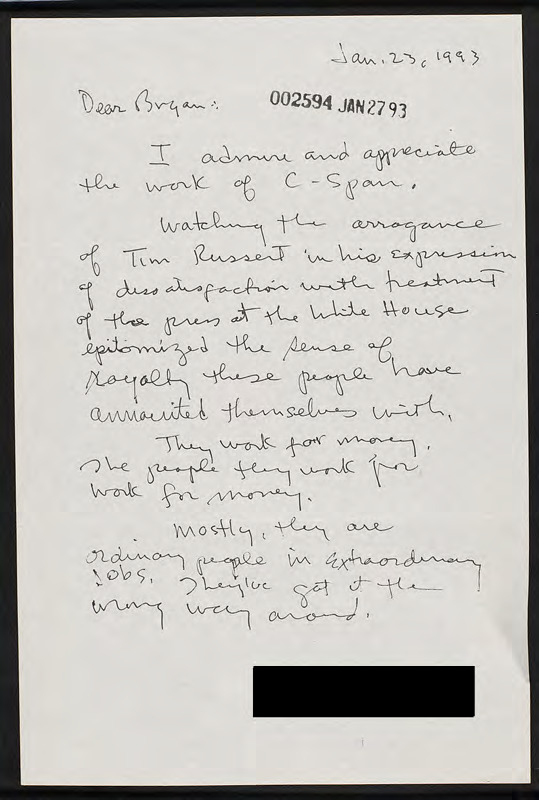 Jan. 23, 1993
Dear Bryan:
002594 JAN 27 93
I admire and appreciate
the work of C-Span.
Watching the arrogance
of Tim Russert in his expression
of dissatisfaction with treatment
of the press at the White House
epitomized the sense of
royalty these people have
annointed themselves with.
They work for money.
The people they work for
work for money.
Mostly, they are
ordinary people in extraordinary
jobs. They've got it the
wrong way around.